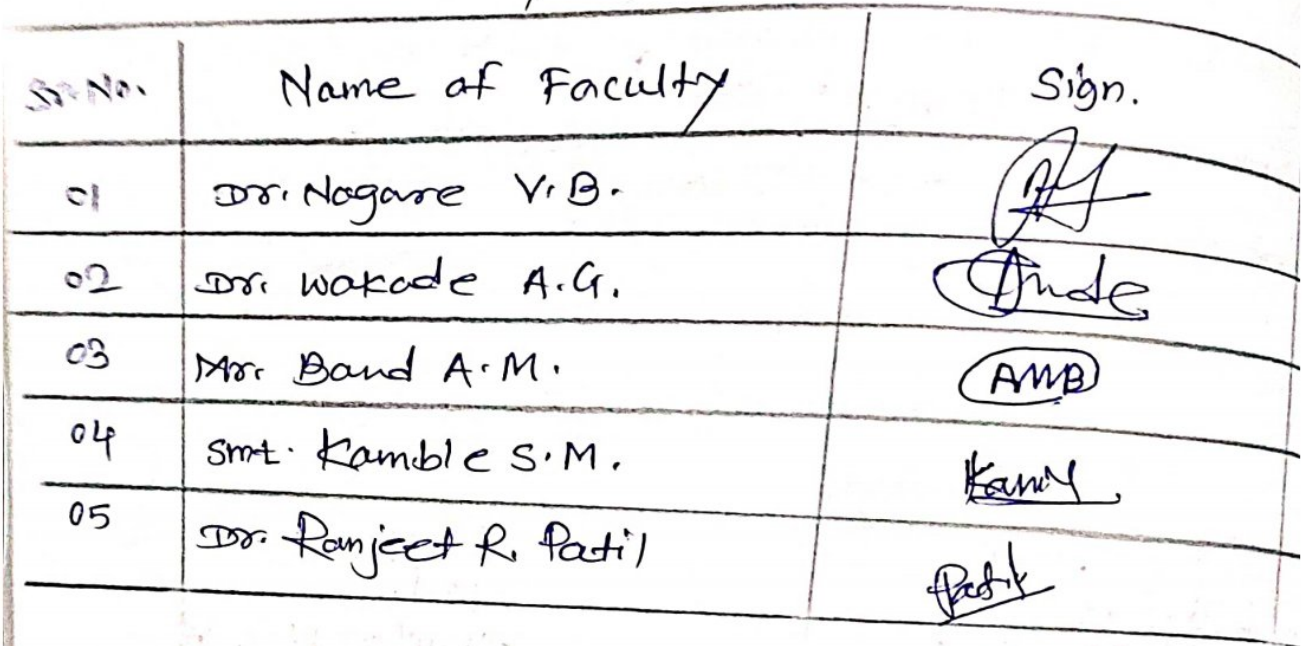 Sr. No. Name of Faculty Sign.
01 Dr. Nagare V. B.
02 Dr. Wakade A. G.
03 Mr. Band A. M. AMB
04 Smt. Kamble S. M.
05 Dr. Ranjeet R. Patil Patil